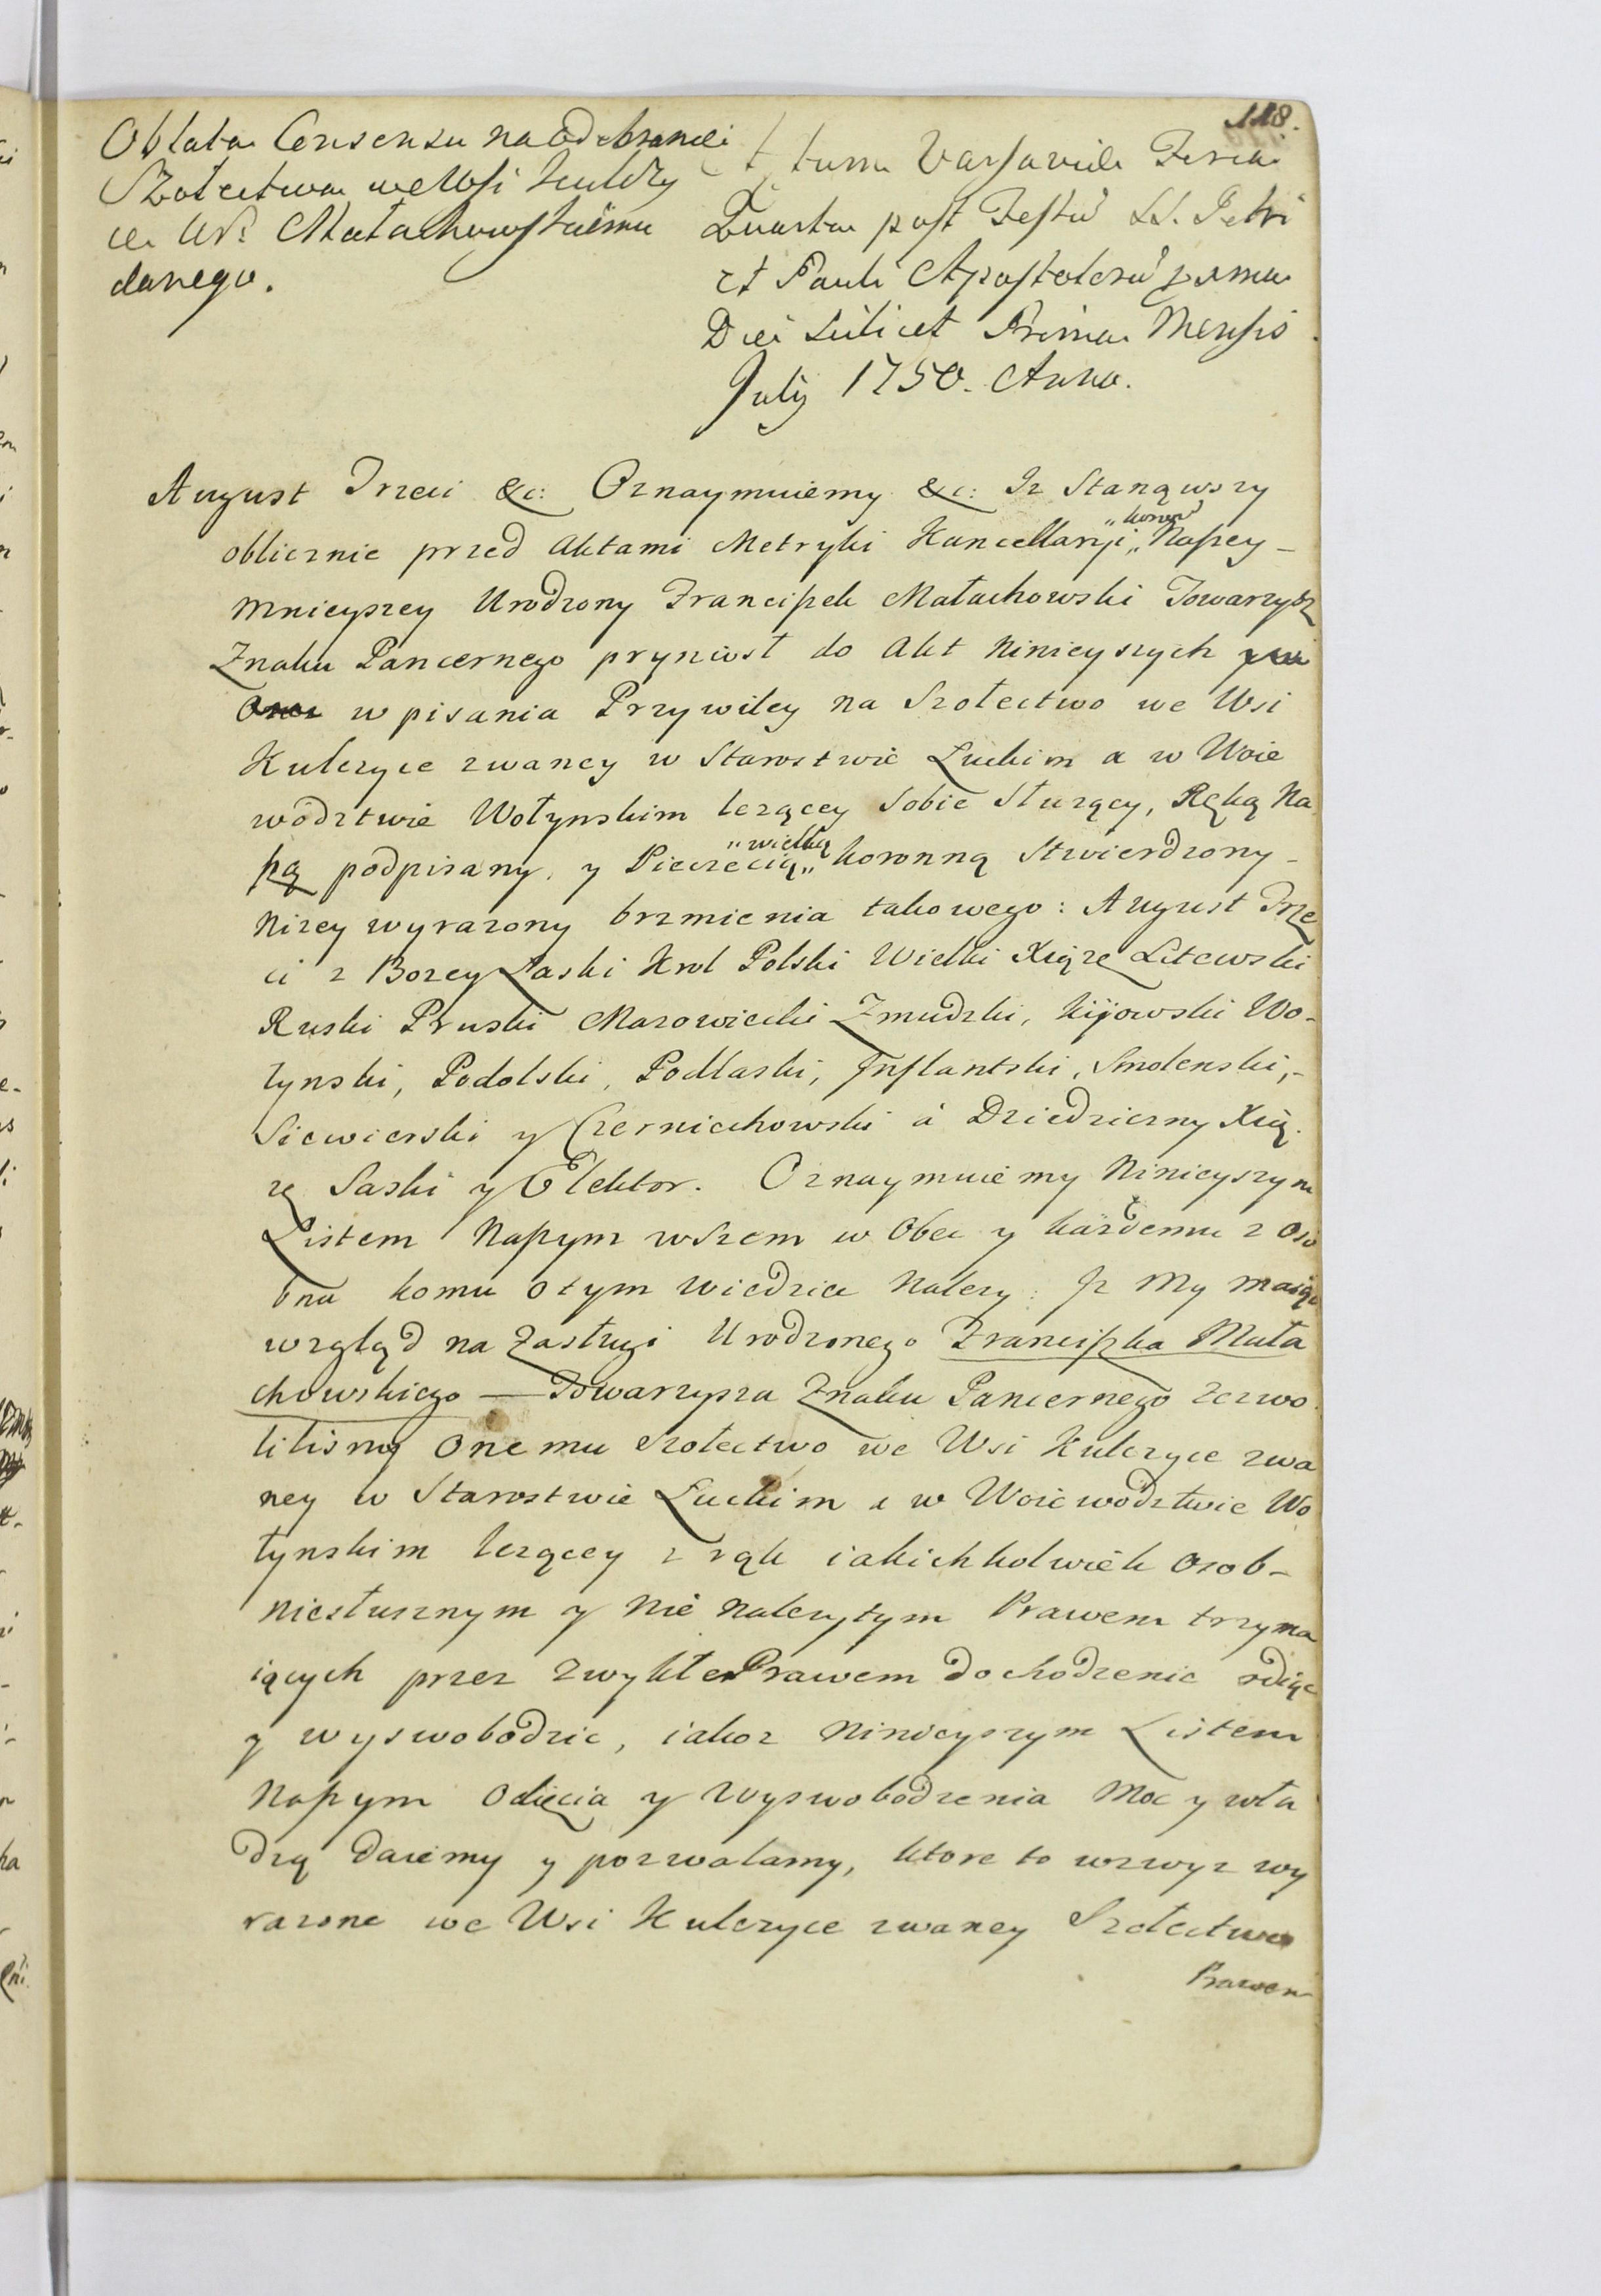 118.
Oblata Consensu na Odebranie
Szołectwa we Wsi Kulczy
ce Ur: Małachowskiemu
danego.
Actum Varsaviae Feria
Quarta post Festū SS. Petri
et Pauli Apostolorū
Die Scilicet Prima Mensis
July 1750. Anno.
August Trzeci &c: Oznaymuiemy &c: Iz Stanąwszy
oblicznie przed Aktami Metryki Kancellaryi „koron„ Naszey-
mnieyszey Urodzony Franciszek Małachowski Towarzysz
Znaku Pancernego pryniosł do Akt Ninieyszych
wpisania Przywiley na Szołectwo we Wsi
Kulczyce zwaney w Starostwie Luckim a w Woie
wodztwie Wołynskim lezącey Sobie Słuzący, Ręką Na
szą podpisany, y Pieczęcią „wielką„ koronną Stwierdzony-
Nizey wyrazony brzmienia takowego: August Trze
ci z Bozey Łaski Krol Polski Wielki Xiąze Litewski
Ruski Pruski Mazowiecki Zmudzki, Kijowski Wo-
łynski, Podolski, Podlaski, Inflantski, Smolenski,-
Siewierski y Czerniechowski á Dziedziczny Xią.
zę Saski y Elektor. Oznaymuiemy Ninieyszym
Listem Naszym wszem w Obec y kazdemu z Oso
bna komu o tym wiedziec Nalezy: Iz My maiąc
wzgląd na Zasługi Urodzonego Franciszka Mała
chowskiego — Towarzysza Znaku Pancernego zezwo
lilismy Onemu Szołectwo we Wsi Kulczyce zwa
ney w Starostwie Luckim a w Woiewodztwie Wo
łynskim lezącey z rąk iakichkolwiek Osob-
niesłusznym y Nie Nalezytym Prawem trzyma
iących przez zwykłe Prawem dochodzenie odiąc
y wyswobodzic, iakoz Ninieyszym Listem
Naszym Odięcia y Wyswobodzenia Moc y wła
dzą daiemy y pozwalamy, ktore to wzwyz wy
razone we Wsi Kulczyce zwaney Szołectwo
Prawem